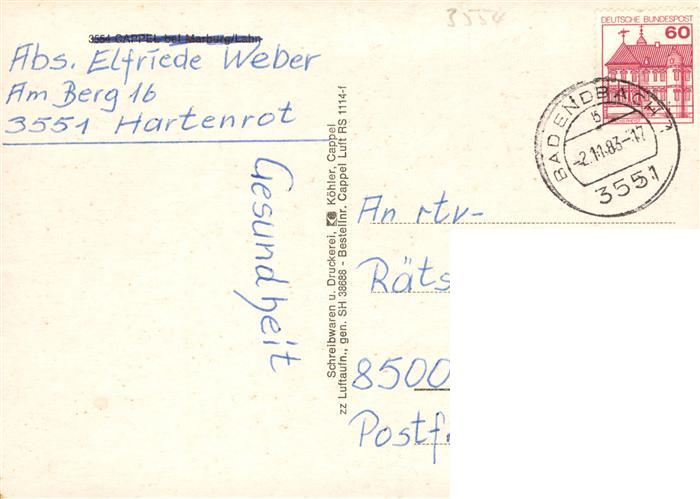 3554 CAPPEL bei Marburg/Lahn
3554
Abs. Elfriede Weber
Am Berg 16
3551 Hartenrot
Gesundheit
Schreibwaren u. Druckerei, Köhler, Cappel
zz Luftaufn., gen. SH 38688 - Bestellnr. Cappel Luft RS 1114-f
DEUTSCHE BUNDESPOST
60
BADENDBACH 1
-2.11.83-17
3551
An rtv-
Räts
8500
Postf